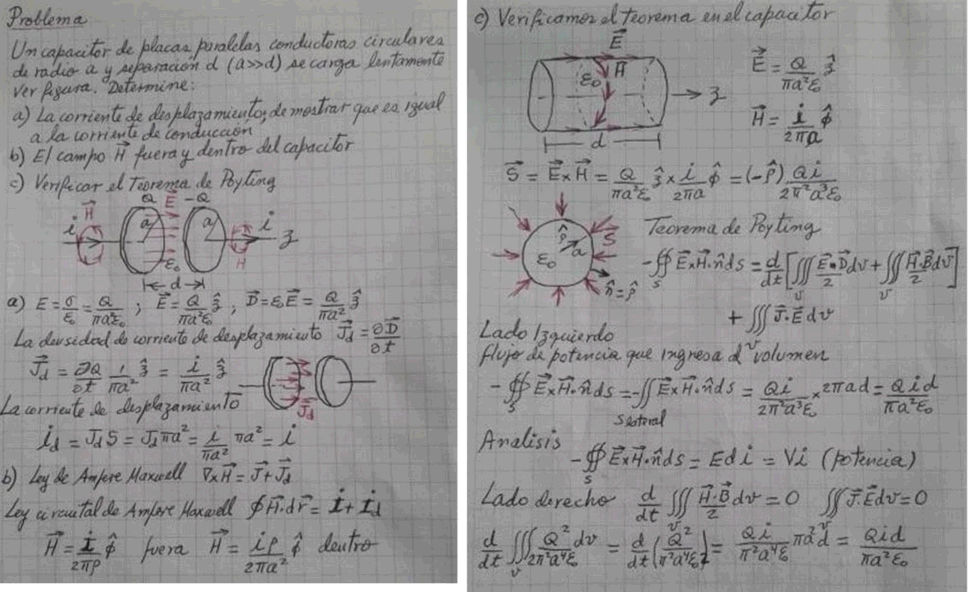 Problema
Un capacitor de placas paralelas conductoras circulares
de radio a y separación d (a>>d) se carga lentamente
ver figura. Determine:
a) La corriente de desplazamiento, demostrar que es igual
a la corriente de conducción
b) El campo H⃗ fuera y dentro del capacitor
c) Verificar el Teorema de Poyting
Q E⃗ -Q
i H⃗ a a i z
ε₀ H
d
a) E = σ/ε₀ = Q/πa²ε₀ ; E⃗ = Q/πa²ε₀ ẑ ; D⃗ = ε₀E⃗ = Q/πa² ẑ
La densidad de corriente de desplazamiento J⃗d = ∂D⃗/∂t
J⃗d = ∂Q/∂t 1/πa² ẑ = i/πa² ẑ
J⃗d
La corriente de desplazamiento
id = Jd S = Jd πa² = i/πa² πa² = i
b) Ley de Ampere Maxwell ∇×H⃗ = J⃗ + J⃗d
Ley circuital de Ampere Maxwell ∮H⃗·dr⃗ = i + id
H⃗ = i/2πρ φ̂ fuera H⃗ = iρ/2πa² φ̂ dentro
c) Verificamos el teorema en el capacitor
E⃗
H⃗
ε₀
z
d
E⃗ = Q/πa²ε₀ ẑ
H⃗ = i/2πa φ̂
S⃗ = E⃗×H⃗ = Q/πa²ε₀ ẑ × i/2πa φ̂ = (-ρ̂) Qi/2π²a³ε₀
ρ̂ a S⃗
ε₀
n̂ = ρ̂
Teorema de Poyting
-∯s E⃗×H⃗·n̂ds = d/dt [∭v E⃗·D⃗/2 dv + ∭v H⃗·B⃗/2 dv]
+ ∭v J⃗·E⃗dv
Lado Izquierdo
flujo de potencia que ingresa al volumen
-∯s E⃗×H⃗·n̂ds = -∬S lateral E⃗×H⃗·n̂ds = Qi/2π²a³ε₀ × 2πad = Qid/πa²ε₀
Analisis
-∯s E⃗×H⃗·n̂ds = Edi = Vi (potencia)
Lado derecho d/dt ∭v H⃗·B⃗/2 dv = 0 ∭v J⃗·E⃗dv = 0
d/dt ∭v Q²/2π²a⁴ε₀ dv = d/dt (Q²/π²a⁴ε₀2 = Qi/π²a⁴ε₀ πa²d = Qid/πa²ε₀